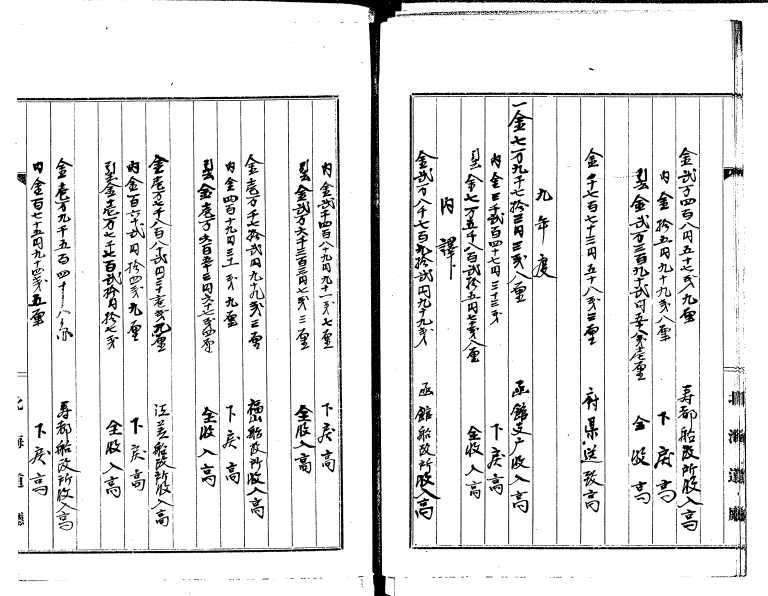 金弐万四百八円五十七戔九厘 寿都船改所收入高
内金拾五円九十九戔八厘 下戻高
引金弐万三百九十弐円五十八戔壱厘 全收入高
金千七百七十三円五十八戔三厘 府県送致高
九年度
一金七万九千七拾三円三戔八厘 函館支庁收入高
内金三千弐百四十七円三十三戔 下戻高
引金七万五千八百弐拾五円七戔八厘 全收入高
内訳
金弐万八千七百九拾弐円九十九戔 函館船改所收入高
内金弐千四百八十九円九十一戔七厘 下戻高
引金弐万六千三百三円七戔三厘 全收入高
金壱万千七拾弐円九十九戔三厘 福山船改所收入高
内金四百十九円三十一戔九厘 下戻高
引金壱万六百五十三円六十七戔四厘 全收入高
金壱万七千八百八十弐円三十壱戔九厘 江差船改所收入高
内金百六十弐円拾四戔九厘 下戻高
引金壱万七千七百弐拾円拾七戔 全收入高
金壱万九千五百四十 寿都船改所收入高
内金百七十五円九十四戔五厘 下戻高
北海道廳